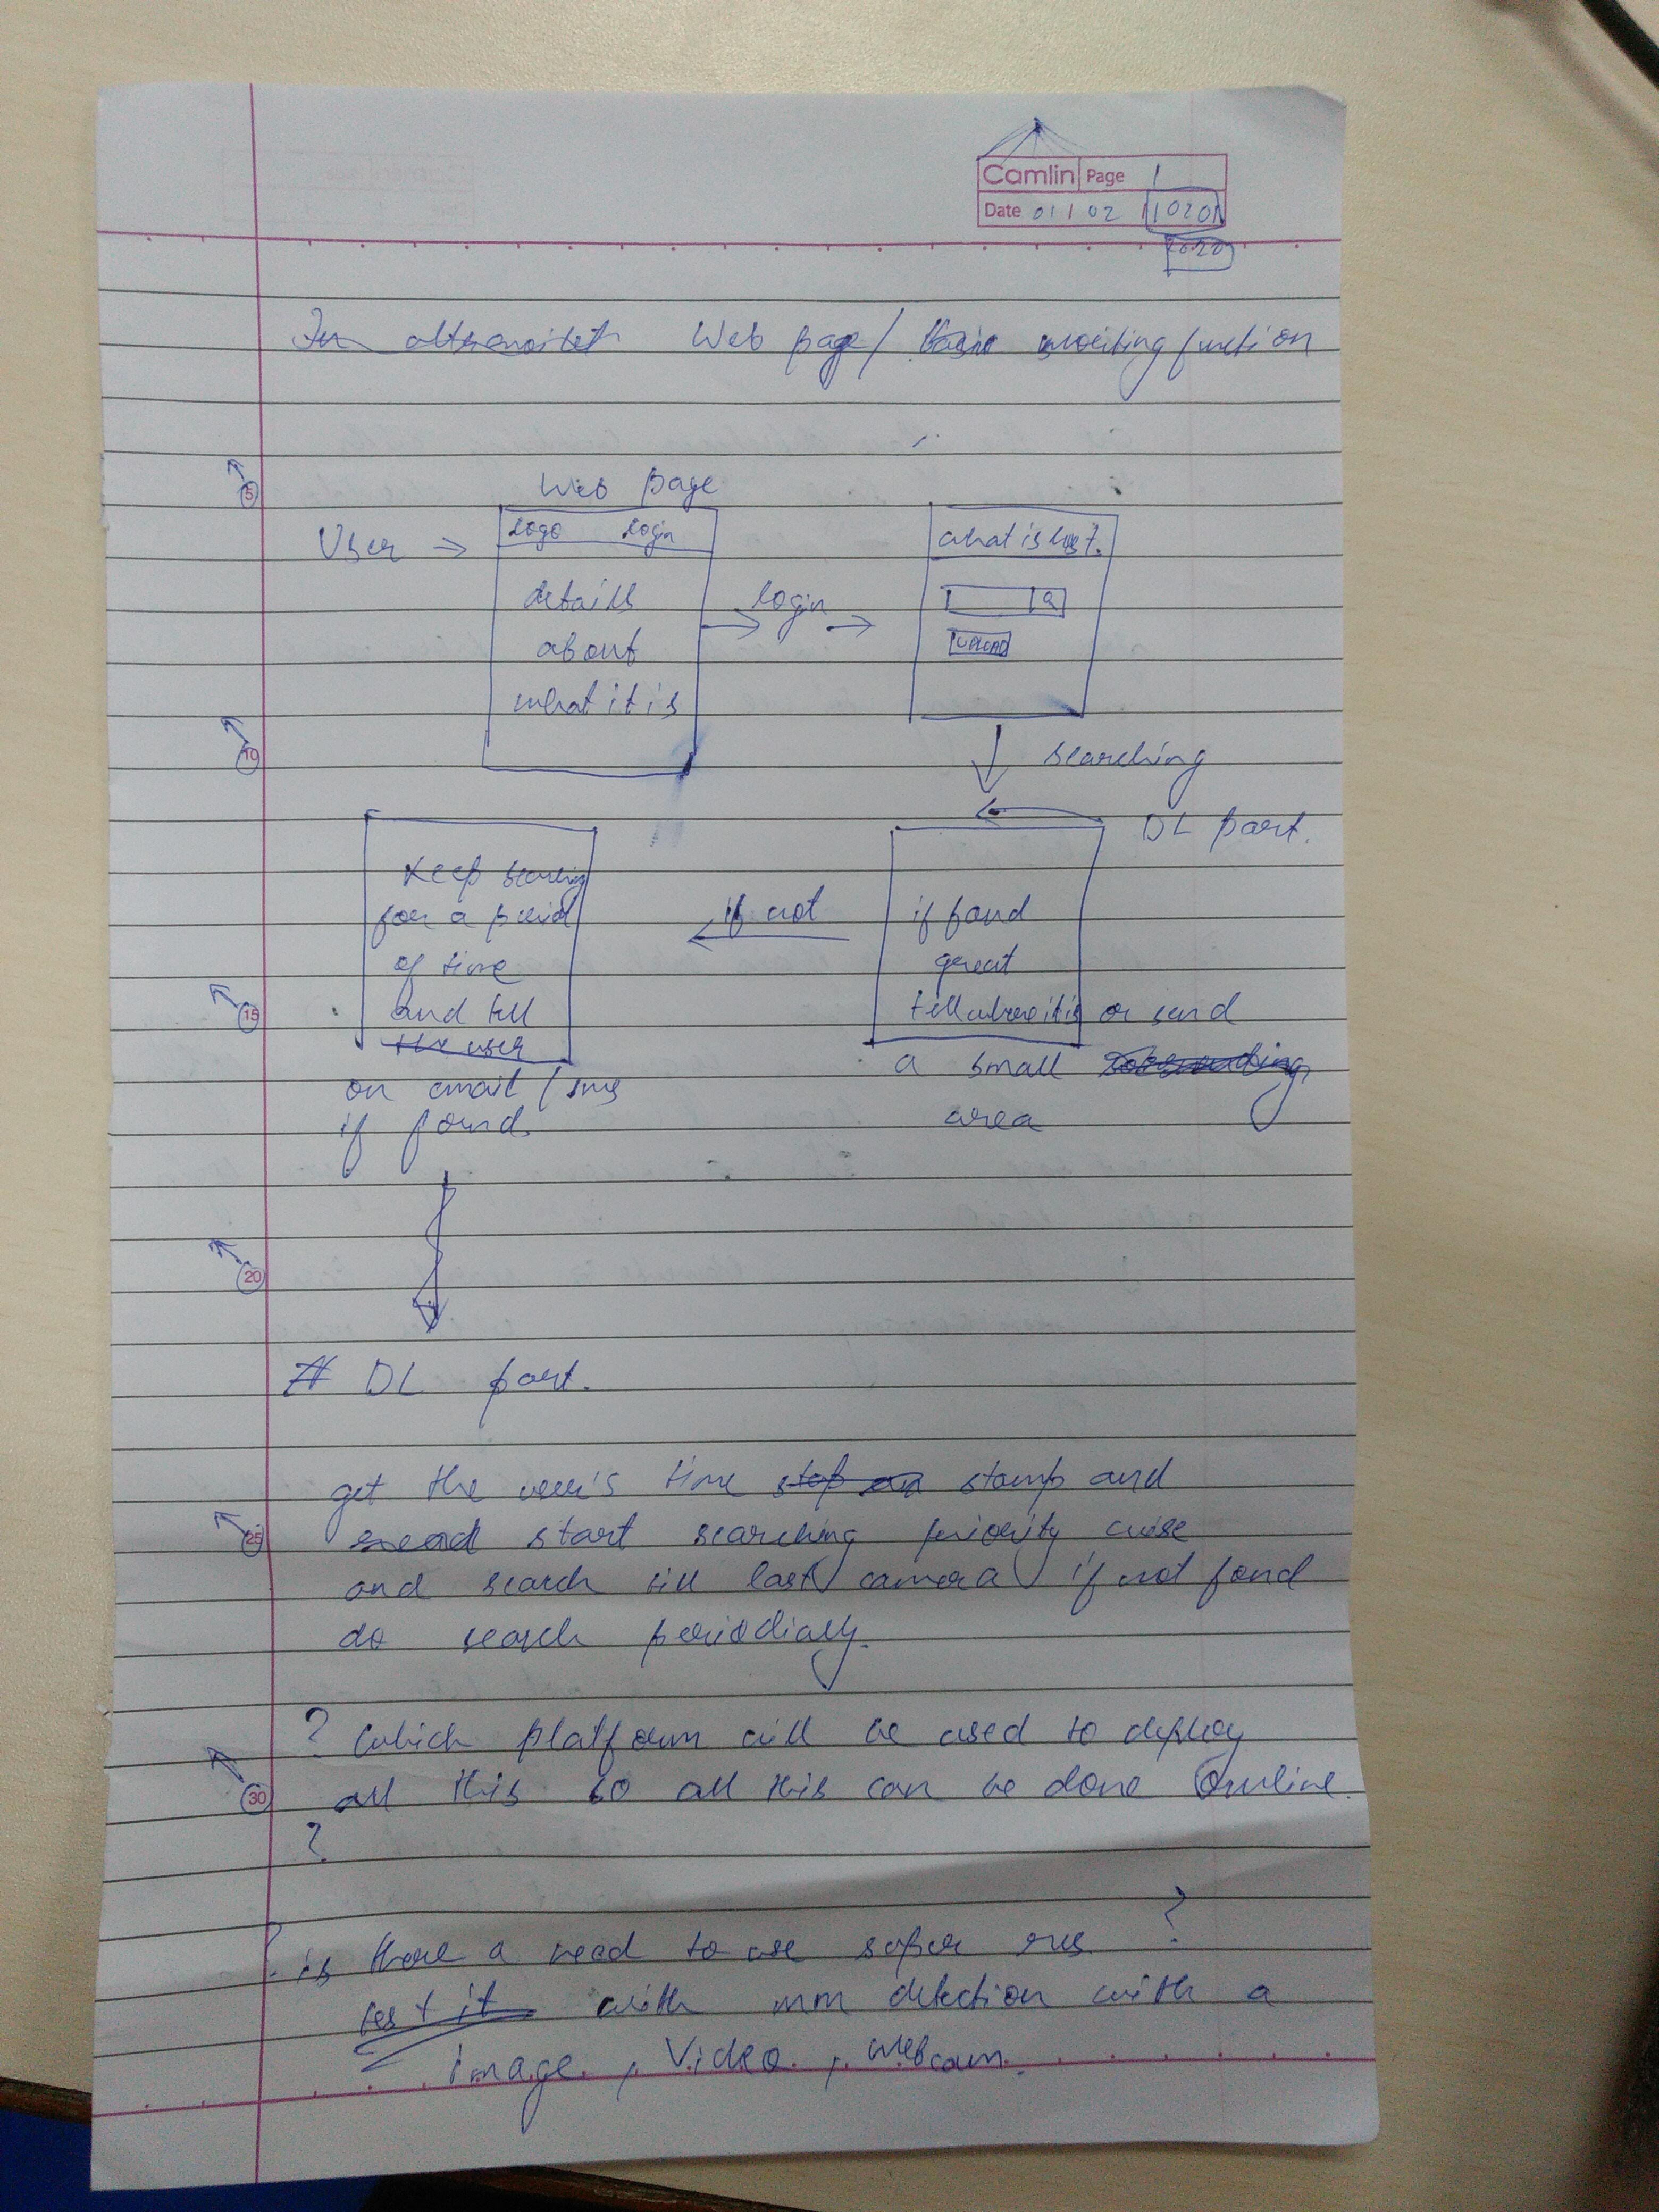 Camlin Page 1
Date 01 / 02 / 1020
2020
In Web page / waiting function
Web page
logo login
User →
details
about
what it is
→ login →
what is lost.
UPLOAD
searching
DL part.
if found
great
tell where it is or send
a small
area
if not
Keep searching
for a period
of time
and tell
the user
on email / sms
if found.
# DL part.
get the user's time stop an stamp and
start searching priority wise
and search till last camera if not fond
do search periodialy.
? which platform will be used to deploy
all this so all this can be done Online
?
? is there a need to use super res ?
test it with mm detection with a
image , Video , webcam.
5
10
15
20
25
30